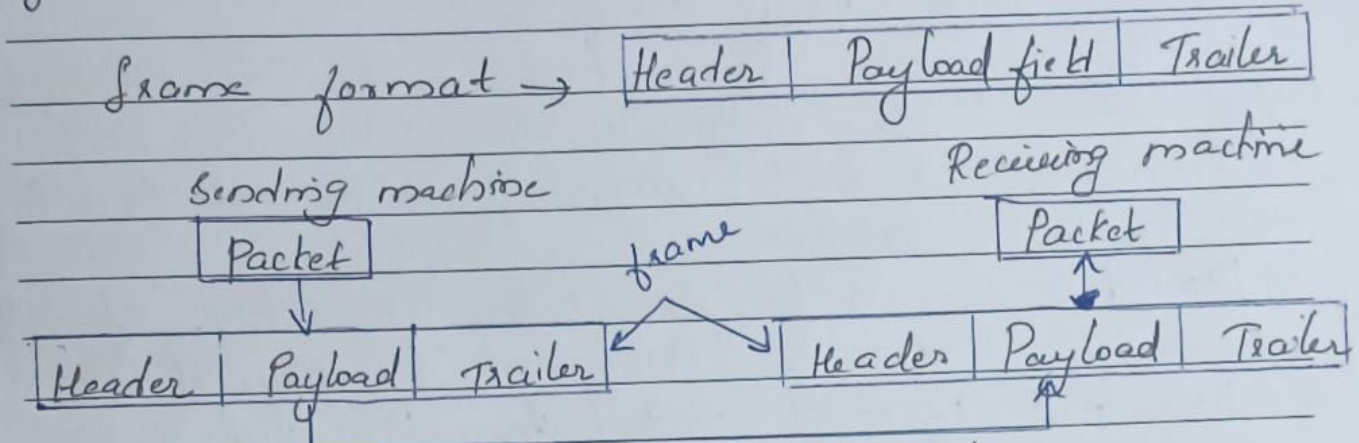 frame format → Header Payload field Trailer
Sending machine Receiving machine
Packet frame Packet
Header Payload Trailer Header Payload Trailer